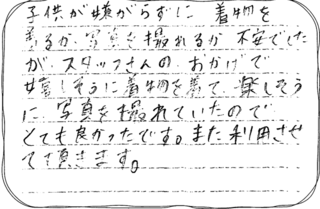 子供が嫌がらずに 着物を
着るか、写真を撮れるか 不安でした
が、スタッフさんの おかげで
嬉しそうに着物を着て、楽しそう
に 写真を撮れていたので
とても良かったです。また利用させ
て頂きます。